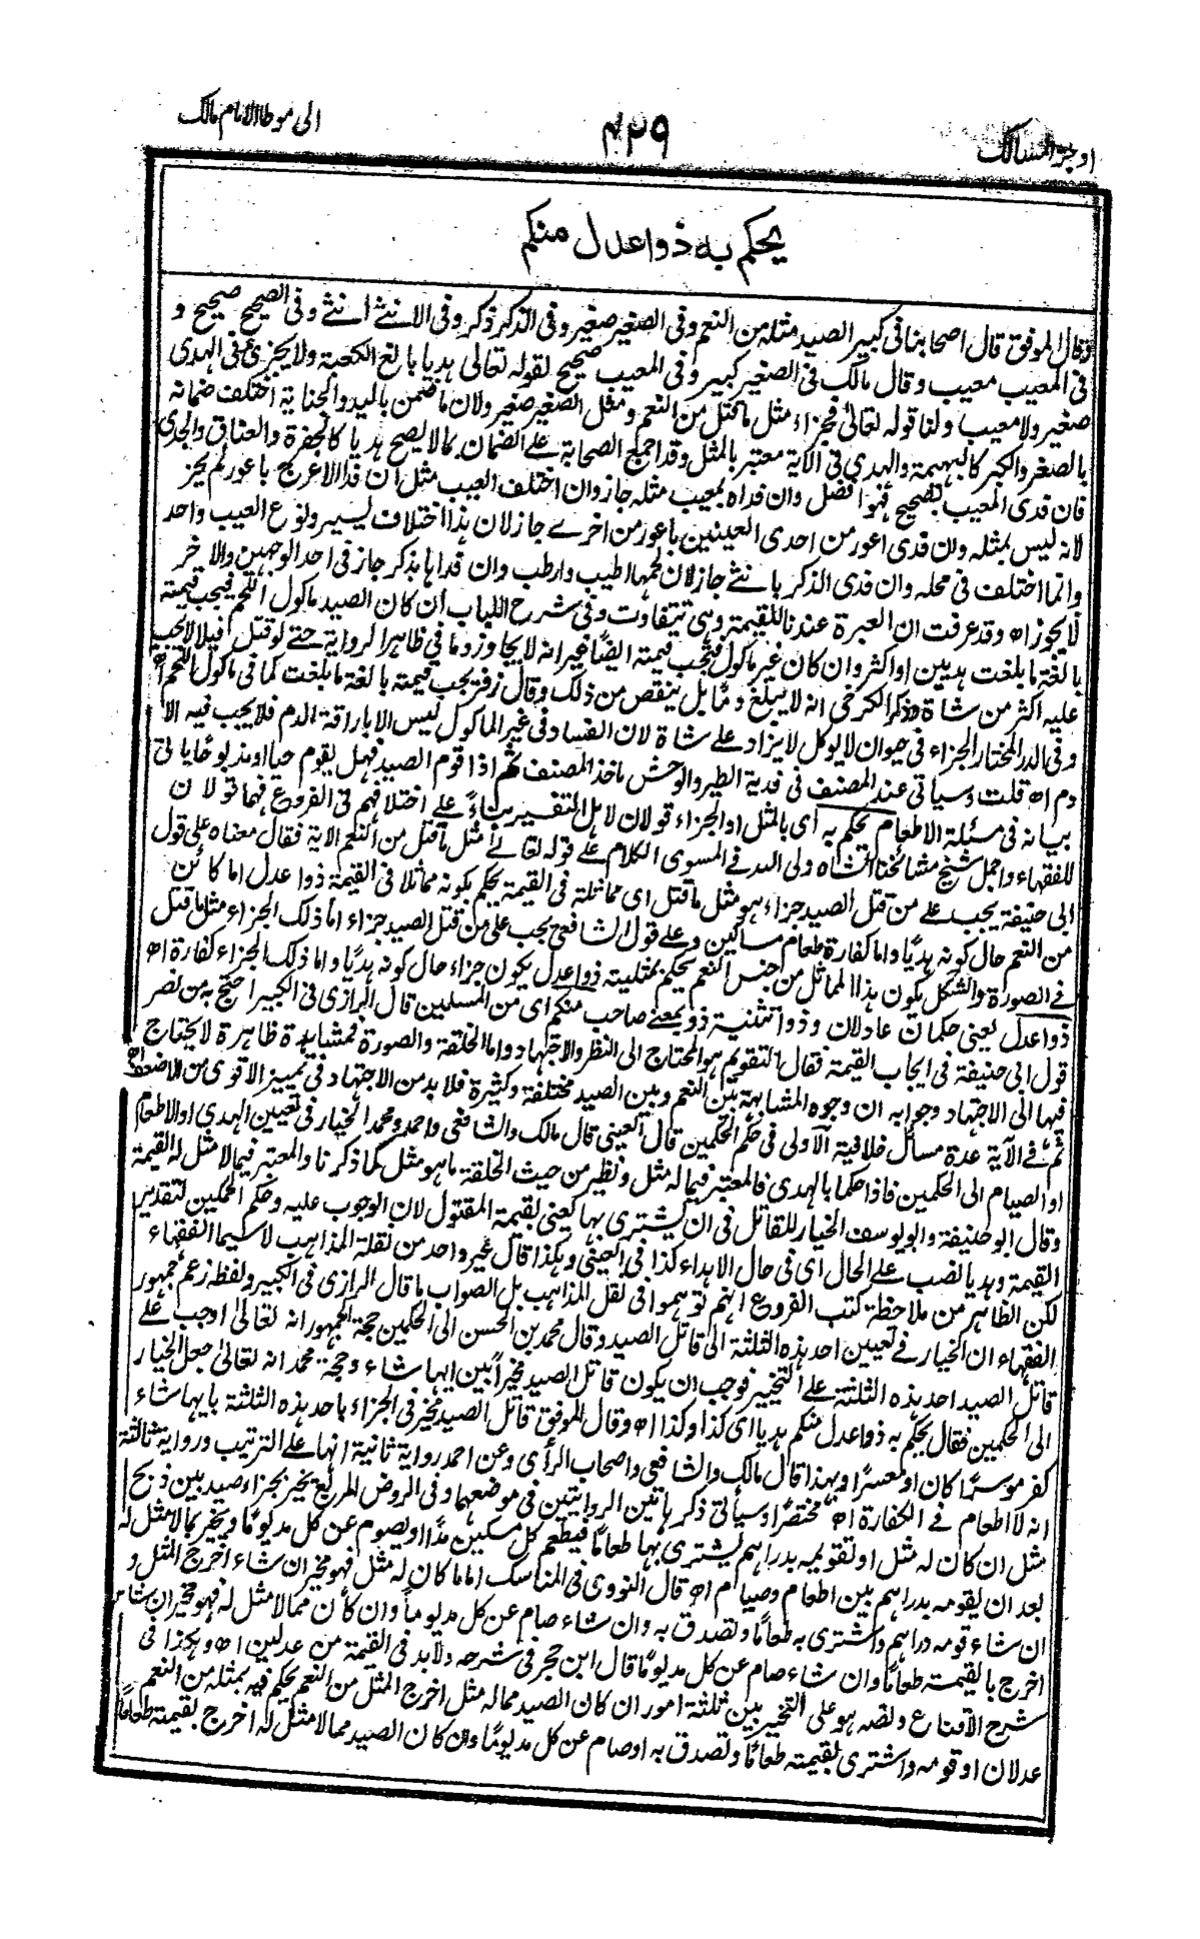 اوجز المسالك
٤٢٩
الى موطا الامام مالك
يحكم به ذوا عدل منكم
وقال الموفق قال اصحابنا فى كبير الصيد مثله من النعم وفى الصغير صغير وفى الذكر ذكر وفى الانثى انثى وفى الصحيح صحيح و
فى المعيب معيب وقال مالك فى الصغير كبير وفى المعيب صحيح لقوله تعالى هديا بالغ الكعبة ولا يجزئ فى الهدى
صغير ولا معيب ولنا قوله تعالى فجزاء مثل ما قتل من النعم ومثل الصغير صغير ولان ما ضمن باليد والجناية اختلف ضمانه
بالصغر والكبر كالبهيمة والهدى فى الآية معتبر بالمثل وقد اجمع الصحابة على الضمان بما لا يصح هديا كالجفرة والعناق والجدى
فان فدى المعيب بصحيح فهو افضل وان فداه بمعيب مثله جاز وان اختلف العيب مثل ان فدا الاعرج باعور لم يجز
لانه ليس بمثله وان فدى اعور من احدى العينين باعور من اخرى جاز لان هذا اختلاف يسير ونوع العيب واحد
وانما اختلف فى محله وان فدى الذكر بانثى جاز لان لحمها اطيب وارطب وان فداها بذكر جاز فى احد الوجهين والاخر
لا يجوز اھ وقد عرفت ان العبرة عندنا للقيمة وهى تتفاوت وفى شرح اللباب ان كان الصيد ماكول اللحم فيجب قيمته
بالغة ما بلغت هديين او اكثر وان كان غير ماكول فتجب قيمته ايضا غير انه لا يجاوز دما فى ظاهر الرواية حتى لو قتل فيلا لا يجب
عليه اكثر من شاة وذكر الكرخى انه لا يبلغ دما بل ينقص من ذلك وقال زفر يجب قيمته بالغة ما بلغت كما فى ماكول اللحم اھ
وفى الدر المختار الجزاء فى حيوان لا يوكل لا يزاد على شاة لان الفساد فى غير الماكول ليس الا باراقة الدم فلا يجب فيه الا
دم اھ قلت وسياتى عند المصنف فى فدية الطير والوحش ماخذ المصنف ثم اذا قوم الصيد فهل يقوم حيا او مذبوحا ياتى
بيانه فى مسئلة الاطعام يحكم به اى بالمثل او الجزاء قولان لاهل التفسير بناءً على اختلافهم فى الفروع فهما قولان
للفقهاء واجمل شيخ مشائخنا الشاه ولى الله فى المسوى الكلام على قوله تعالى مثل ما قتل من النعم الاية فقال معناه على قول
ابى حنيفة يجب على من قتل الصيد جزاء هو مثل ما قتل اى مماثلة فى القيمة يحكم بكونه مماثلا فى القيمة ذوا عدل اما كائن
من النعم حال كونه هديًا واما كفارة طعام مساكين وعلى قول الشافعى يجب على من قتل الصيد جزاء اما ذلك الجزاء مثل ما قتل
فى الصورة والشكل يكون هذا المماثل من جنس النعم يحكم بمثليته ذوا عدل يكون جزاء حال كونه هديًا واما ذلك الجزاء كفارة اھ
ذوا عدل يعنى حكمان عادلان وذوا تثنية ذو بمعنى صاحب منكم اى من المسلمين قال الرازى فى الكبير احتج به من نصر
قول ابى حنيفة فى ايجاب القيمة فقال التقويم هو المحتاج الى النظر والاجتهاد واما الخلقة والصورة فمشاهدة ظاهرة لا يحتاج
فيها الى الاجتهاد وجوابه ان وجوه المشابهة بين النعم وبين الصيد مختلفة وكثيرة فلا بد من الاجتهاد فى تمييز الاقوى من الاضعف اھ
ثم فى الآية عدة مسائل خلافية الاولى فى حكم الحكمين قال العينى قال مالك والشافعى واحمد ومحمد الخيار فى تعيين الهدى او الاطعام
او الصيام الى الحكمين فاذا حكما بالهدى فالمعتبر فيما له مثل ونظير من حيث الخلقة ما هو مثل كما ذكرنا والمعتبر فيما لا مثل له القيمة
وقال ابو حنيفة وابو يوسف الخيار للقاتل فى ان يشترى بها يعنى بقيمة المقتول لان الوجوب عليه وحكم الحكمين لتقدير
القيمة وهديا نصب على الحال اى فى حال الاهداء كذا فى العينى وهكذا قال غير واحد من نقلة المذاهب لا سيما الفقهاء
لكن الظاهر من ملاحظة كتب الفروع انهم توهموا فى نقل المذاهب بل الصواب ما قال الرازى فى الكبير ولفظه زعم جمهور
الفقهاء ان الخيار فى تعيين احد هذه الثلثة الى قاتل الصيد وقال محمد بن الحسن الى الحكمين حجة الجمهور انه تعالى اوجب على
قاتل الصيد احد هذه الثلثة على التخيير فوجب ان يكون قاتل الصيد مخيراً بين ايها شاء وحجة محمد انه تعالى جعل الخيار
الى الحكمين فقال يحكم به ذوا عدل منكم هديا اى كذا وكذا اھ وقال الموفق قاتل الصيد مخير فى الجزاء باحد هذه الثلثة بايها شاء
كفر موسرًا كان او معسرًا وبهذا قال مالك والشافعى واصحاب الرأى وعن احمد رواية ثانية انها على الترتيب ورواية ثالثة
انه لا اطعام فى الكفارة اھ مختصرًا وسيأتى ذكر هاتين الروايتين فى موضعهما وفى الروض المربع يخير بجزاء صيد بين ذبح
مثل ان كان له مثل او تقويمه بدراهم يشترى بها طعامًا فيطعم كل مسكين مدًا او يصوم عن كل مد يومًا ويخير بما لا مثل له
بعد ان يقومه بدراهم بين اطعام وصيام اھ قال النووى فى المناسك اما ما كان له مثل فهو مخير ان شاء اخرج المثل و
ان شاء قومه دراهم واشترى به طعامًا وتصدق به وان شاء صام عن كل مد يوماً وان كان مما لا مثل له فهو مخير ان شاء
اخرج بالقيمة طعامًا وان شاء صام عن كل مد يومًا قال ابن حجر فى شرحه ولا بد فى القيمة من عدلين اھ وهكذا فى
شرح الاقناع ونصه هو على التخيير بين ثلثة امور ان كان الصيد مما له مثل اخرج المثل من النعم يحكم فيه بمثله من النعم
عدلان او قومه واشترى بقيمته طعامًا وتصدق به او صام عن كل مد يومًا وان كان الصيد مما لا مثل له اخرج بقيمته طعامًا